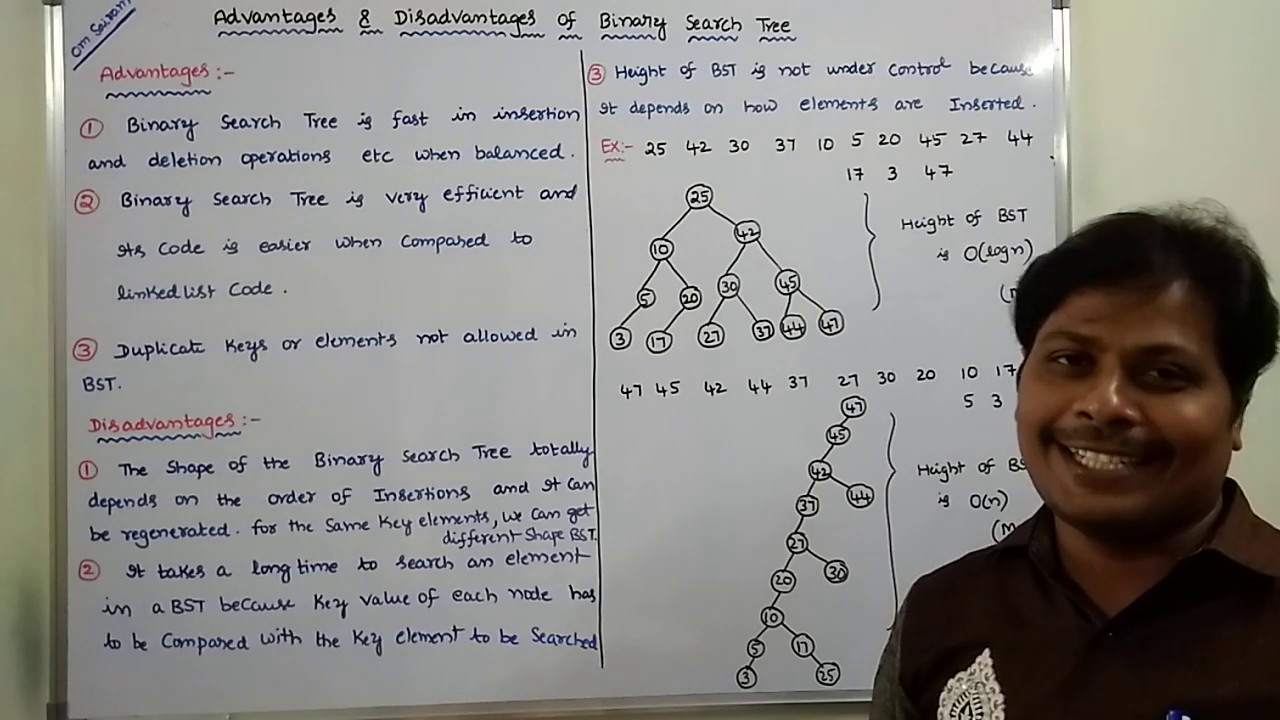 Om Sairam
Advantages & Disadvantages of Binary Search Tree
Advantages :-
① Binary Search Tree is fast in insertion
and deletion operations etc when balanced.
② Binary Search Tree is very efficient and
its code is easier when compared to
linked list code.
③ Duplicate keys or elements not allowed in
BST.
Disadvantages :-
① The shape of the Binary Search Tree totally
depends on the order of Insertions and it can
be regenerated. for the same key elements, we can get
different shape BST.
② It takes a long time to search an element
in a BST because key value of each node has
to be compared with the key element to be searched
③ Height of BST is not under control because
it depends on how elements are Inserted.
Ex:- 25 42 30 37 10 5 20 45 27 44
17 3 47
25
10 42
5 20 30 45
3 17 27 37 44 47
Height of BST
is O(logn)
47 45 42 44 37 27 30 20 10 17
5 3
47
45
42
37 44
27
20 30
10
5 17
3 25
Height of BS
is O(n)